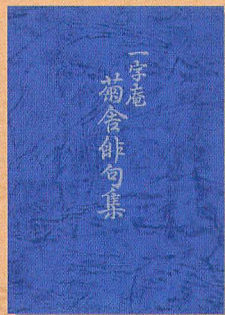 一字庵
菊舎俳句集